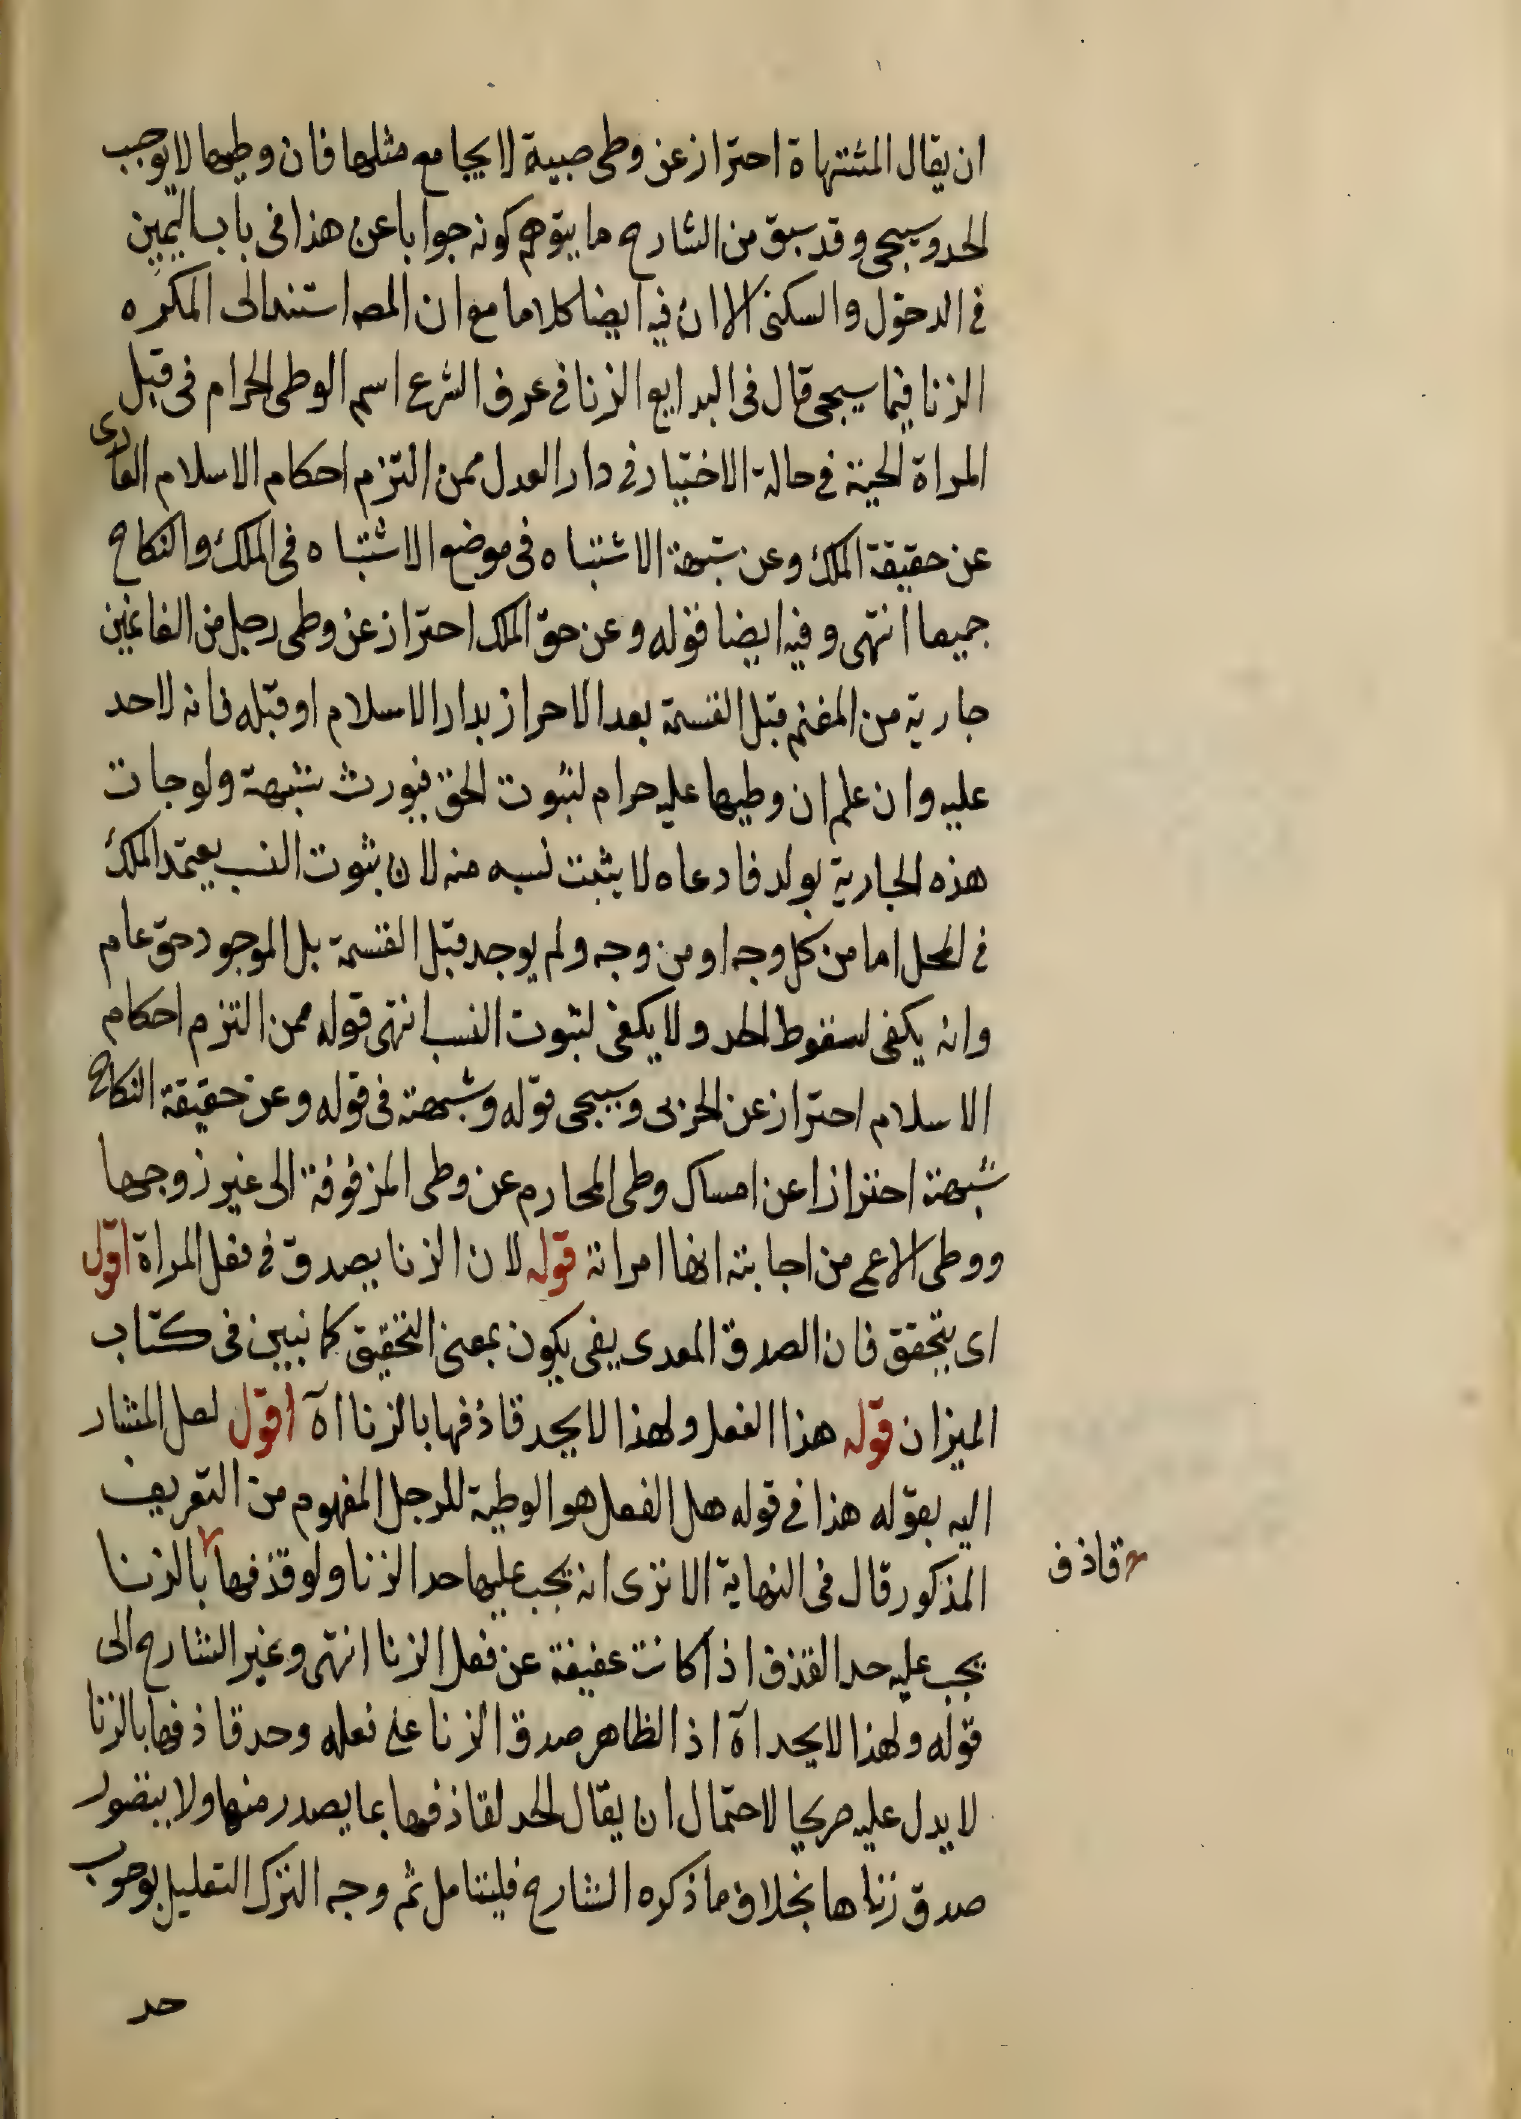 ان يقال المشتهاة احترازعن وطى صبية لا يجامع مثلها فان وطيها لا يوجب
الحد وسيجى وقد سبق من الشارح ما يتوهم كونه جوابا عن هذا فى باب اليمين
فى الدخول والسكنى الا ان فيه ايضا كلاما مع ان المصـ استند الى المكره
الزنا فيما سيجى قال فى البدايع الزنا فى عرف الشرع اسم الوطى الحرام فى قبل
المراة الحية فى حالة الاختيار فى دار العدل ممن التزم احكام الاسلام العارى
عن حقيقة الملك وعن شبهة الاشتباه فى موضع الاشتباه فى الملك والنكاح
جميعا انتهى وفيه ايضا قوله وعن حق الملك احتراز عن وطى رجل من الغانمين
جارية من المغنم قبل القسمة بعد الاحراز بدار الاسلام او قبله فانه لا حد
عليه وان علم ان وطيها عليه حرام لثبوت الحق فيورث شبهة ولو جات
هذه الجارية بولد فادعاه لا يثبت نسبه منه لان ثبوت النسب يعتمد الملك
فى المحل اما من كل وجه او من وجه ولم يوجد قبل القسمة بل الموجود حق عام
وانه يكفى لسقوط الحد ولا يكفى لثبوت النسب انتهى قوله ممن التزم احكام
الاسلام احتراز عن الحربى وسيجى قوله وشبهته فى قوله وعن حقيقة النكاح
شبهة احترازا عن امساك وطى المحارم عن وطى المزفوفة الى غير زوجها
ووطى الاعمى من اجابته انها امراته قوله لان الزنا يصدق فى فعل المراة اقول
اى يتحقق فان الصدق المعدى بفى يكون بمعنى التحقيق كما نبين فى كتاب
الميزان قوله هذا الفعل ولهذا لا يحد قاذفها بالزنا اه اقول لعل المشار
اليه بقوله هذا فى قوله هل الفعل هو الوطية للرجل المفهوم من التعريف
المذكور قال فى النهاية الا ترى انه يجب عليها حد الزنا ولو قذفها بالزنا
قاذف
يجب عليه حد القذف اذا كانت عفيفة عن فعل الزنا انتهى وغير الشارح الى
قوله ولهذا لا يحد اه اذ الظاهر صدق الزنا على فعله وحد قاذفها بالزنا
لا يدل عليه صريحا لاحتمال ان يقال الحد لقاذفها بما يصدر منها ولا يتصور
صدق زناها بخلاف ما ذكره الشارح فليتامل ثم وجه الترك التعليل بوجوب
حد